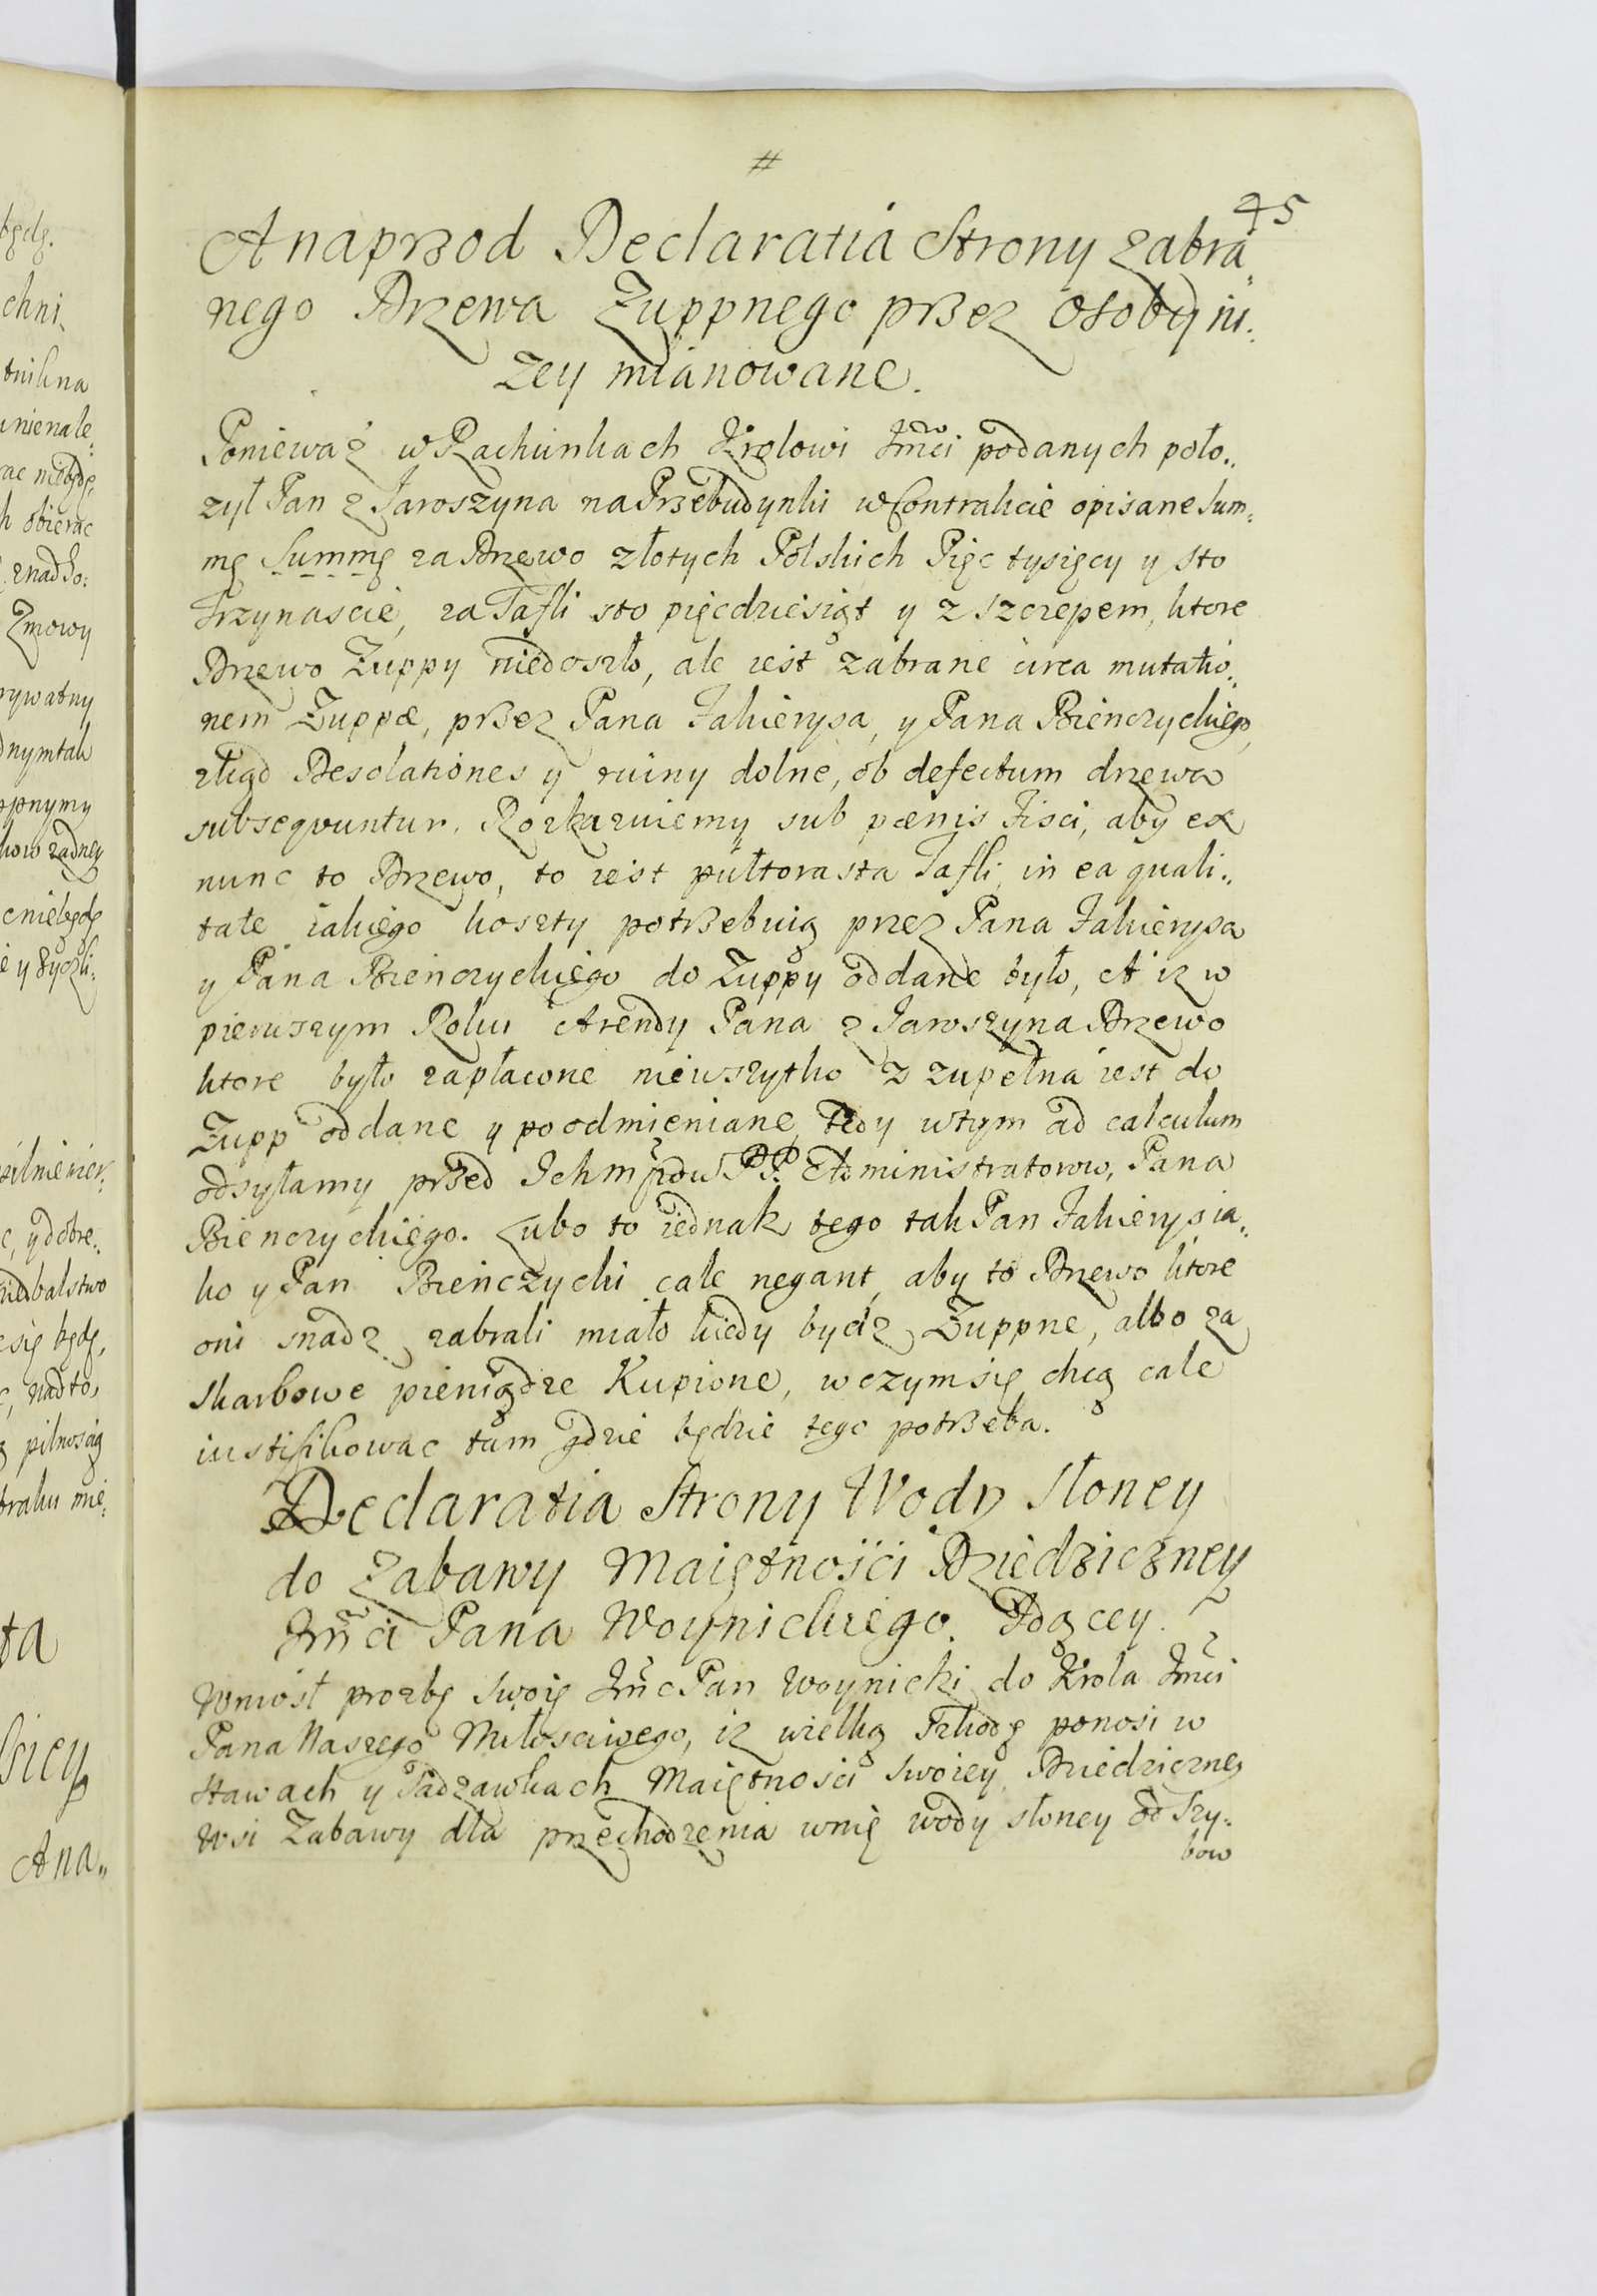 #
45
A naprzod Declaratia Strony zabra„
nego Drzewa Zuppnego przez osoby ni:
zey mianowane.
Poniewaz w Rachunkach Krolowi Jmći podanych poło„
zył Pan z Jaroszyna na Przebudynki w Contrakcie opisane Sum:
mę Summę za Drzewo złotych Polskich Pięc tysięcy y sto
Trzynascie, za Tafli sto pięcdziesiąt y z szczepem, ktore
Drzewo Zuppy niedoszło, ale iest zabrane circa mutatio„
nem Zuppæ, przez Pana Jakierysa, y Pana Bienczyckiego,
zkąd Desolationes y ruiny dolne, ob defectum drzewa
subseqvuntur. Rozkazuiemy sub pœnis Fisci, aby ex
nunc to Drzewo, to iest pułtorasta Tafli, in ea quali„
tate iakiego koszty potrzebuią przez Pana Jakierysa
y Pana Bienczyckiego do Zuppy oddane było, A iz w
pierwszym Roku Arendy Pana z Jaroszyna Drzewo
ktore było zapłacone niewszytko z zupełna iest do
Zupp oddane y poodmieniane, Tedy wtym ad calculum
odsyłamy przed Ichmćiow PP. Administratorow, Pana
Bienczyckiego. Lubo to iednak tego tak Pan Jakierys ia„
ko y Pan Bieńczycki cale negant, aby to Drzewo ktore
oni snadz zabrali miało kiedy bydz Zuppne, albo za
Skarbowe pieniądze Kupione, wczym się chcą cale
iustifikowac tam gdzie będzie tego potrzeba.
Declaratia Strony Wody Słoney
do Zabawy Maiętnośći Dziedziczney
Jmći Pana Woynickiego Idącey.
Wniosł prozbę swoię Jmć Pan Woynicki do Krola Jmći
Pana Naszego Miłosciwego, iz wielką Szkodę ponosi w
stawach y Sadzawkach Maiętnosci swoiey Dziedziczney
Wsi Zabawy dla przechodzenia wnię wody słoney od Szy:
bow